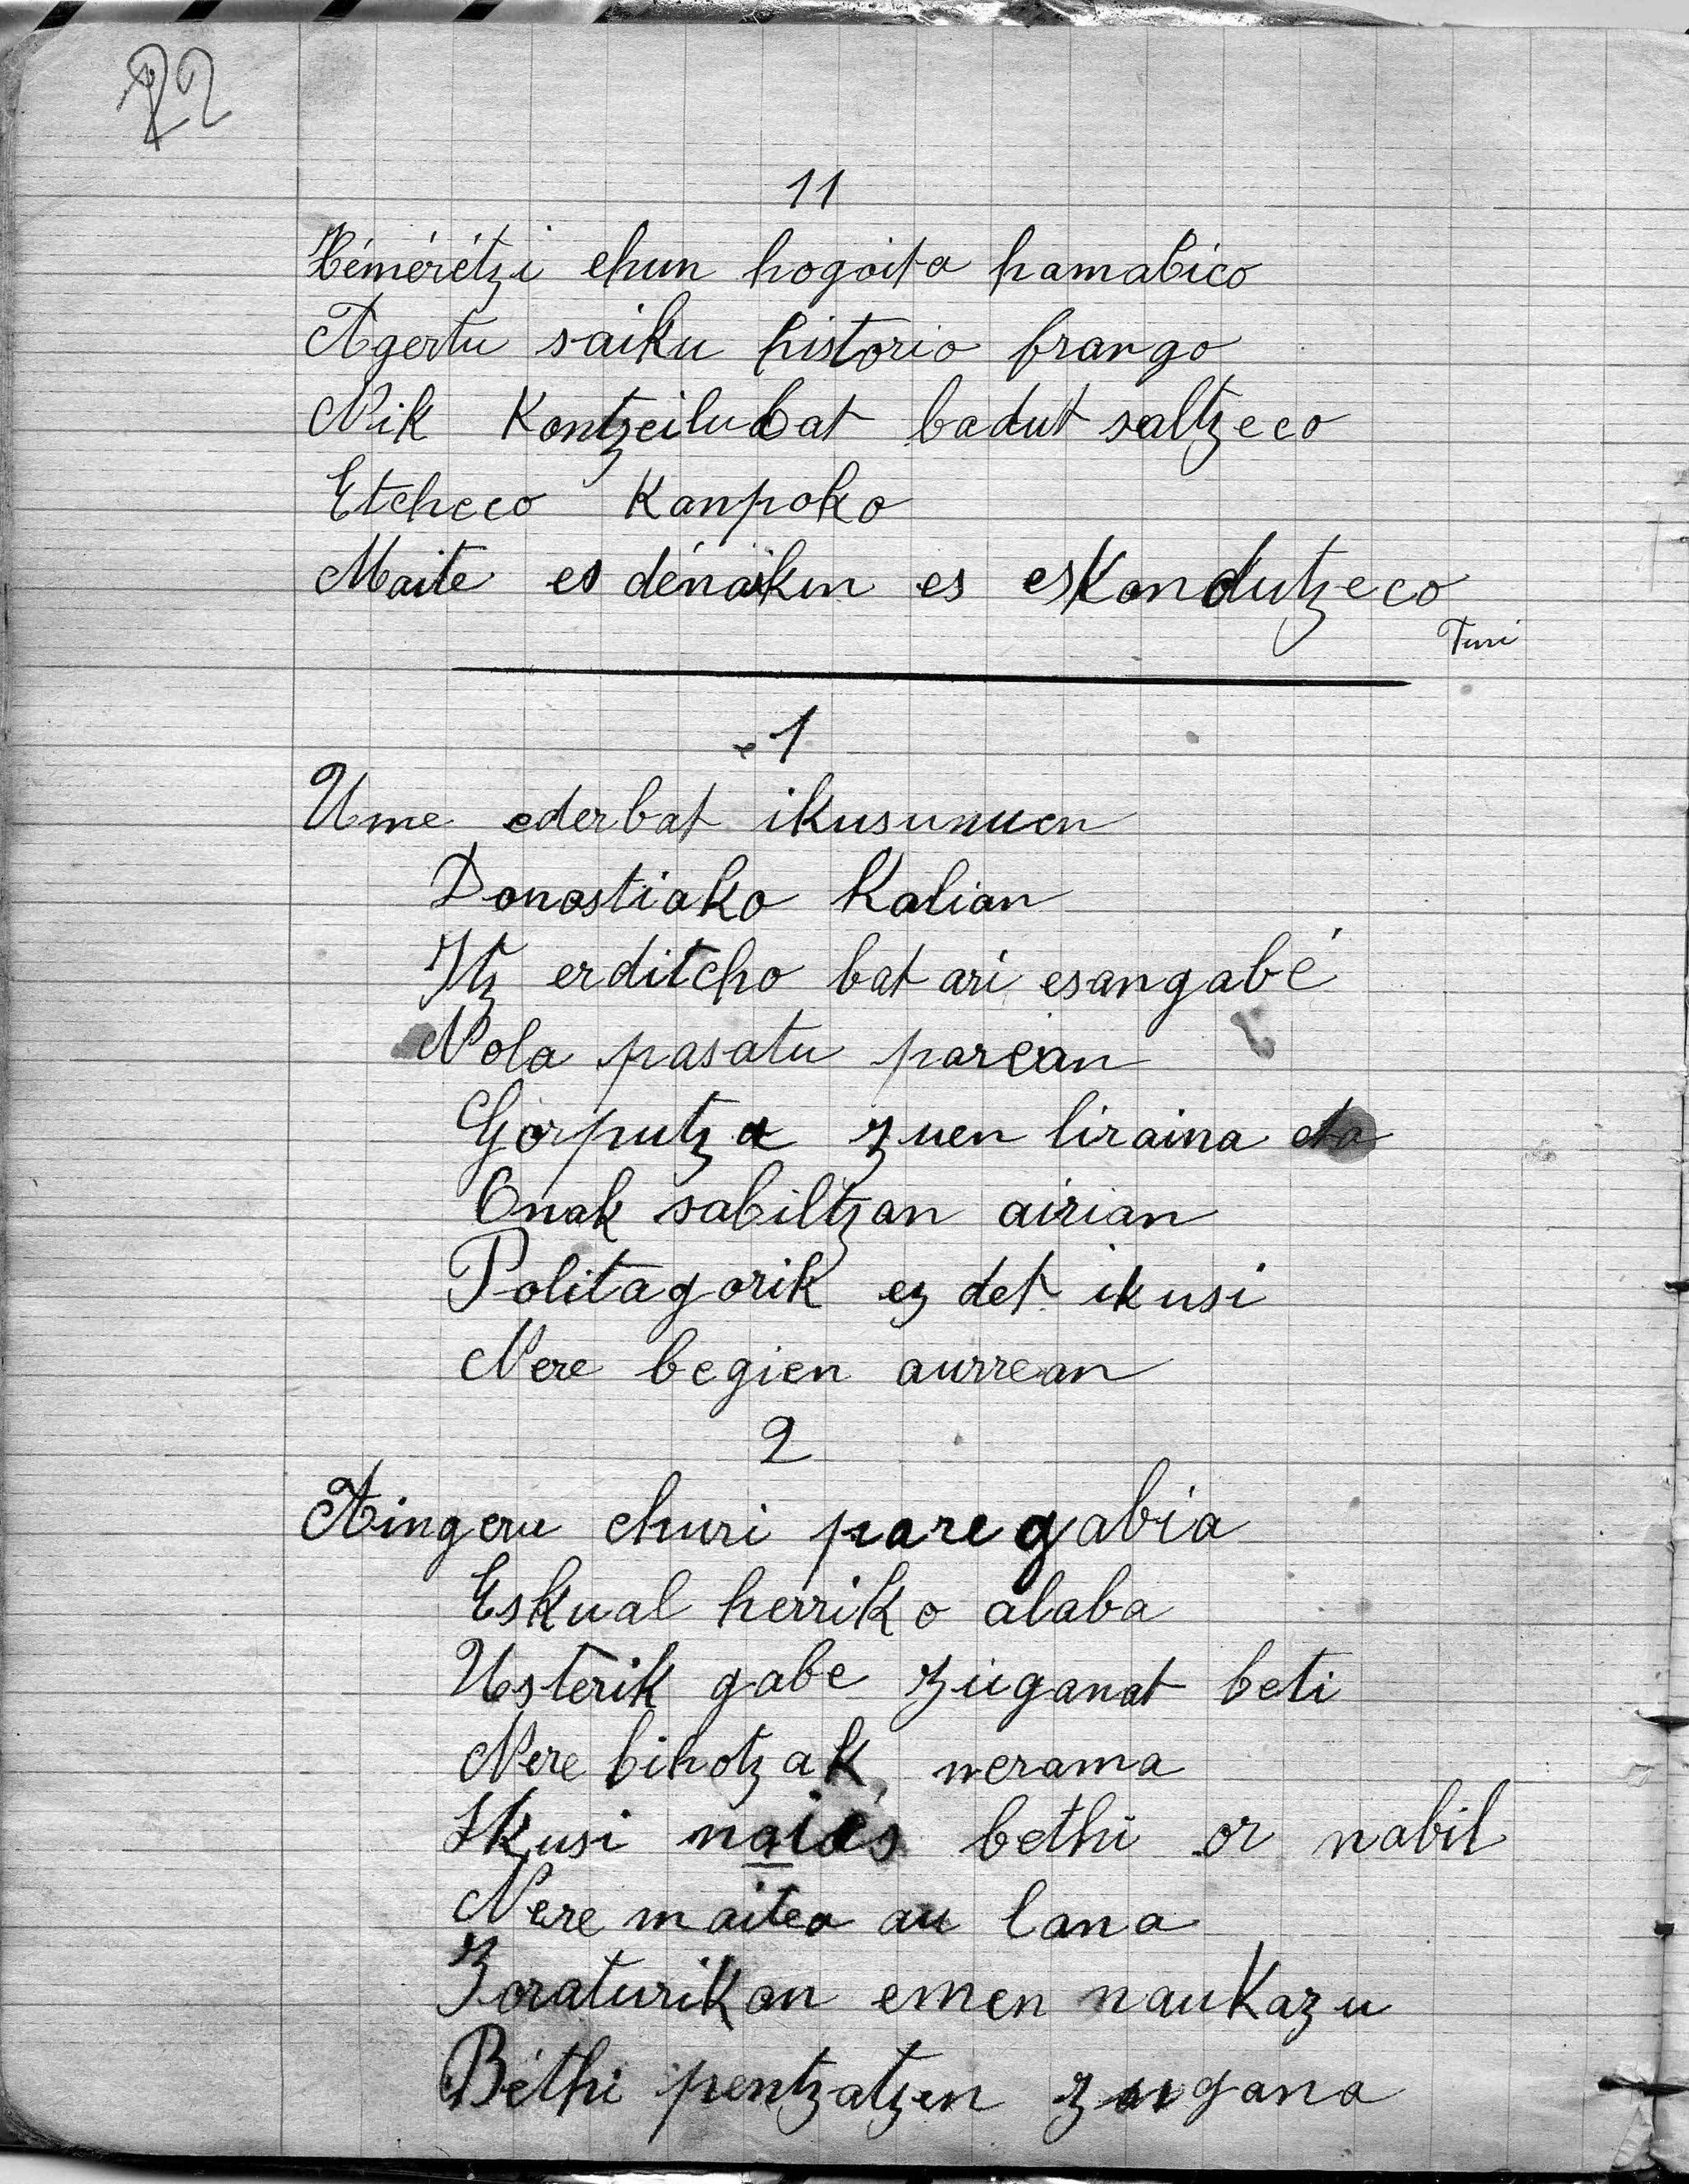 22
11
Héméretzi ehun hogoita hamabico
Agertu saiku historio frango
Nik Kontzeilubat badut saltzeco
Etcheco Kanpoko
Maite es dénaikin es eskondutzeco
1
Ume ederbat ikusunuen
Donostiako Kalian
Itz erditcho bat ari esangabé
Nola pasatu parean
Gorputza zuen liraina eta
Onak sabiltzan airian
Politagorik ez det ikusi
Nere begien aurrean
2
Aingeru churi paregabia
Eskual herriko alaba
Usterik gabe zuganat beti
Nere bihotzak nerama
Ikusi naiés bethi or nabil
Nere maitea au lana
Zoraturikan emen naukazu
Béthi pentzatzen zugana